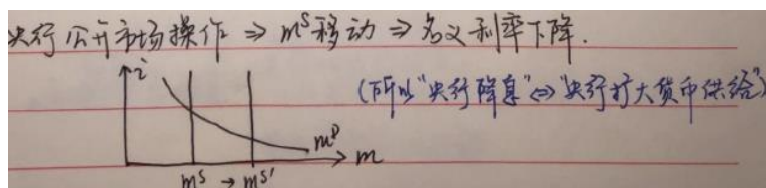 央行公开市场操作 ⇒ mˢ移动 ⇒ 名义利率下降.
i
(所以"央行降息"⇔"央行扩大货币供给")
mᴰ
m
mˢ → mˢ'